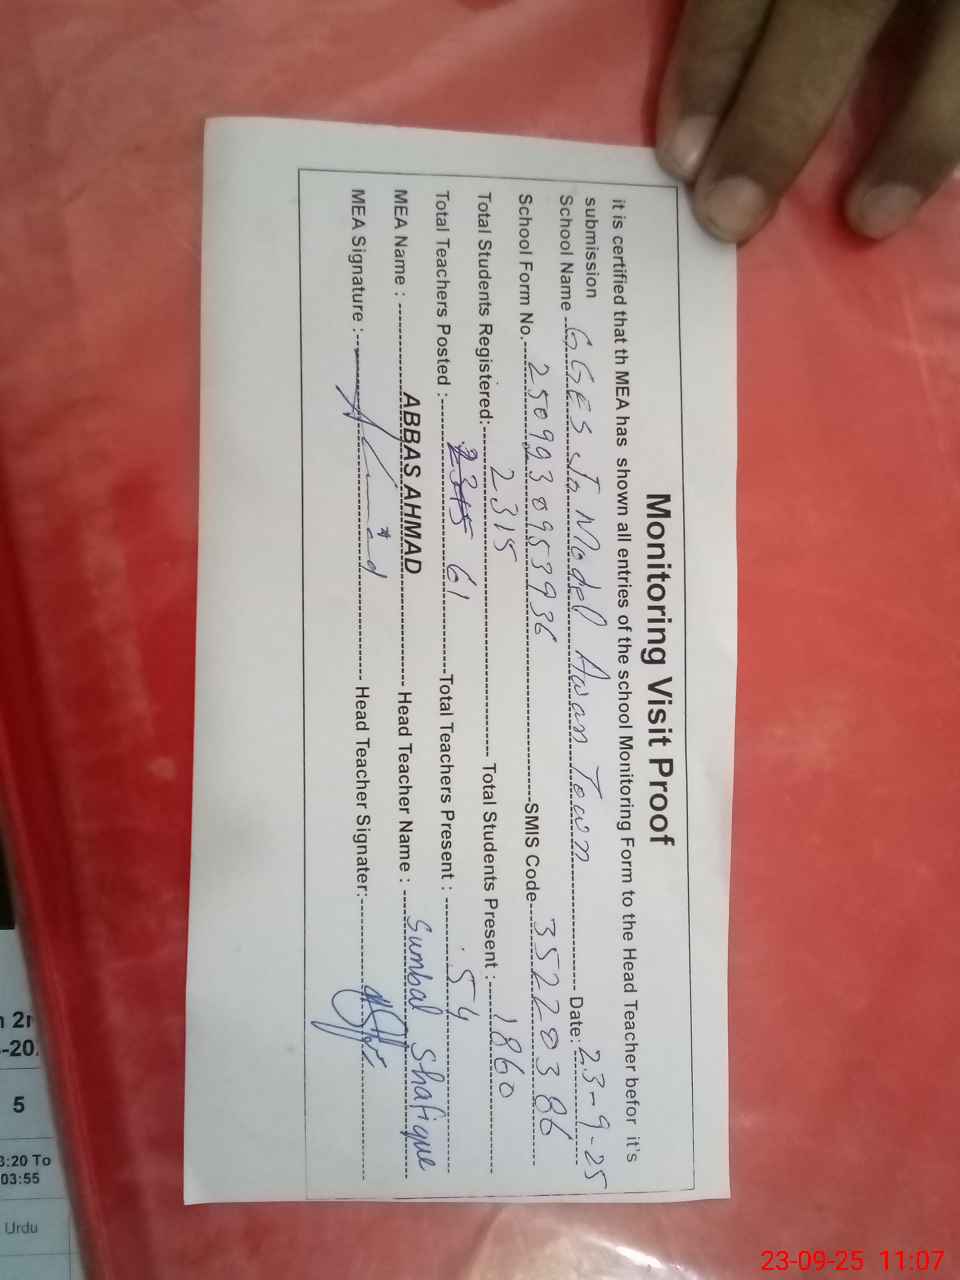 Monitoring Visit Proof
it is certified that th MEA has shown all entries of the school Monitoring Form to the Head Teacher befor it's
submission
School Name GGES Jn Model Awan Town Date: 23-9-25
School Form No. 2509930953936 SMIS Code 35220386
Total Students Registered: 2315 Total Students Present : 1860
Total Teachers Posted : 2315 61 Total Teachers Present : 54
MEA Name : ABBAS AHMAD Head Teacher Name : Sumbal Shafique
MEA Signature : Ahmad Head Teacher Signater:
2n
-20
5
3:20 To
03:55
Urdu
23-09-25 11:07